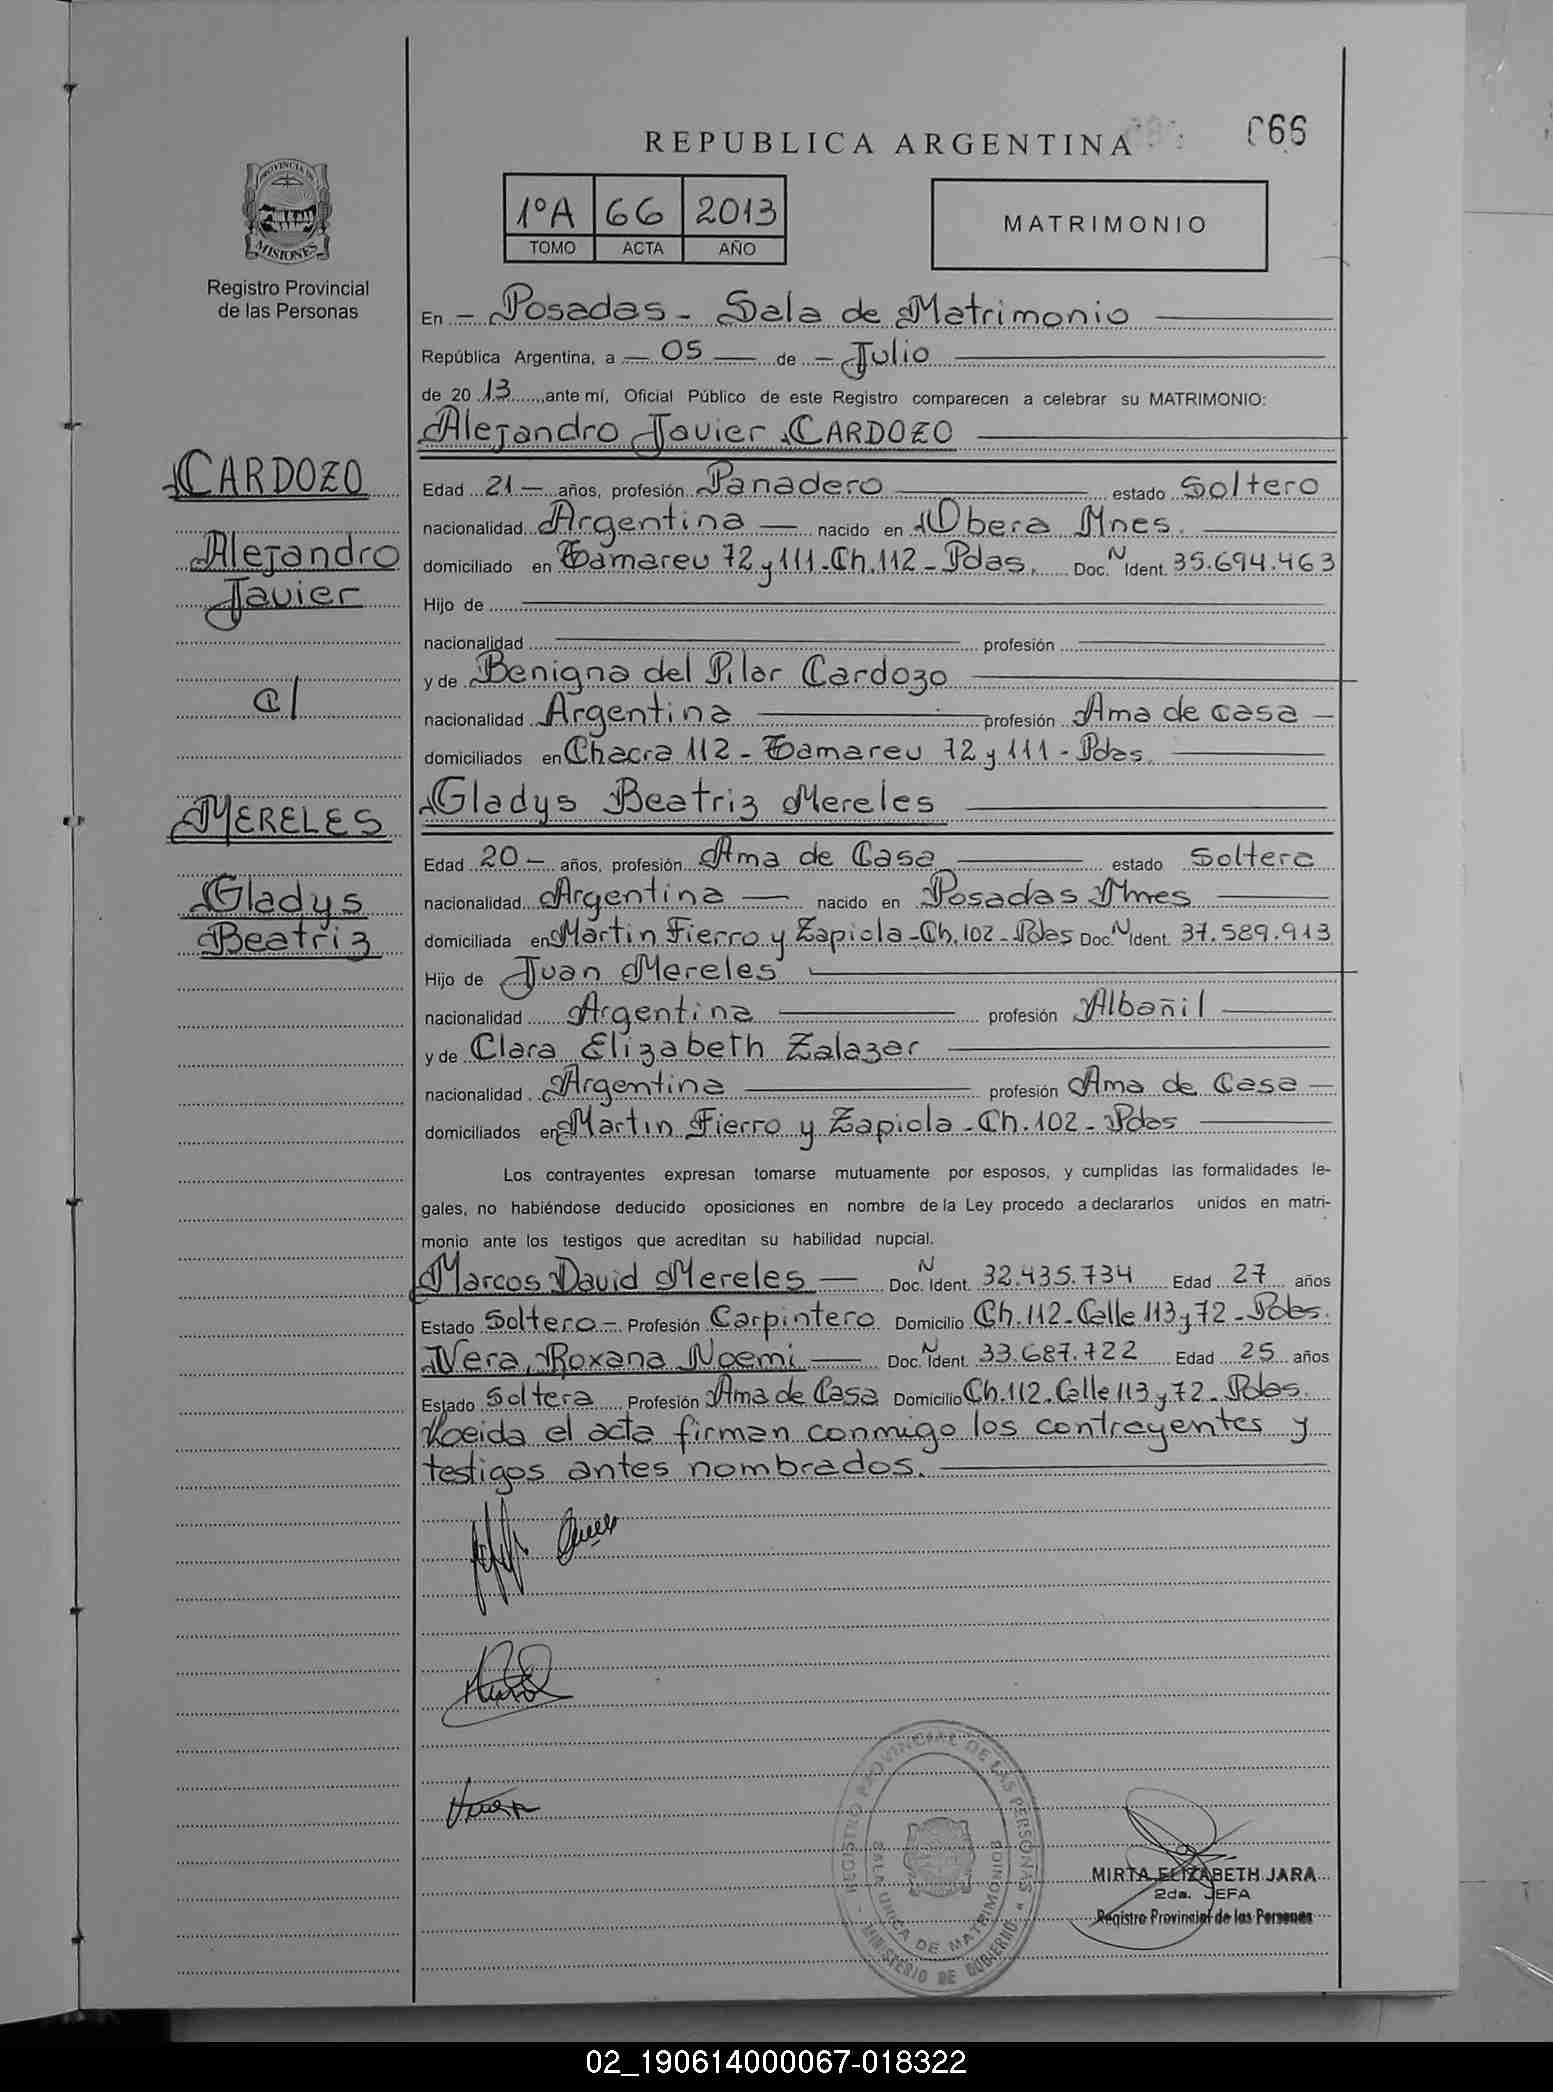 REPUBLICA ARGENTINA
066
PROVINCIA DE
MISIONES
Registro Provincial
de las Personas
1ºA 66 2013
TOMO ACTA AÑO
MATRIMONIO
En - Posadas - Sala de Matrimonio
República Argentina, a - 05 - de - Julio
de 2013, ante mí, Oficial Público de este Registro comparecen a celebrar su MATRIMONIO:
Alejandro Javier CARDOZO
CARDOZO
Alejandro
Javier
c/
MERELES
Gladys
Beatriz
Edad 21 - años, profesión Panadero estado Soltero
nacionalidad Argentina - nacido en Obera Mnes.
domiciliado en Tamareu 72 y 111 - Ch. 112 - Pdas. Doc. N Ident. 35.694.463
Hijo de
nacionalidad profesión
y de Benigna del Pilar Cardozo
nacionalidad Argentina profesión Ama de casa -
domiciliados en Chacra 112 - Tamareu 72 y 111 - Pdas.
Gladys Beatriz Mereles
Edad 20 - años, profesión Ama de Casa estado Soltera
nacionalidad Argentina - nacido en Posadas Mnes
domiciliada en Martin Fierro y Zapiola - Ch. 102 - Pdas Doc. N Ident. 37.589.913
Hijo de Juan Mereles
nacionalidad Argentina profesión Albañil
y de Clara Elizabeth Zalazar
nacionalidad Argentina profesión Ama de Casa -
domiciliados en Martin Fierro y Zapiola - Ch. 102 - Pdas
Los contrayentes expresan tomarse mutuamente por esposos, y cumplidas las formalidades le-
gales, no habiéndose deducido oposiciones en nombre de la Ley procedo a declararlos unidos en matri-
monio ante los testigos que acreditan su habilidad nupcial.
Marcos David Mereles - Doc. N Ident. 32.435.734 Edad 27 años
Estado Soltero - Profesión Carpintero Domicilio Ch. 112 - Calle 113 y 72 - Pdas.
Vera, Roxana Noemi - Doc. N Ident. 33.687.722 Edad 25 años
Estado Soltera Profesión Ama de Casa Domicilio Ch. 112 - Calle 113 y 72 - Pdas.
Leida el acta firman conmigo los contrayentes y
testigos antes nombrados.
REGISTRO PROVINCIAL DE LAS PERSONAS
SALA UNICA DE MATRIMONIOS
MINISTERIO DE GOBIERNO
MIRTA ELIZABETH JARA
2da. JEFA
Registro Provincial de las Personas
02_190614000067-018322